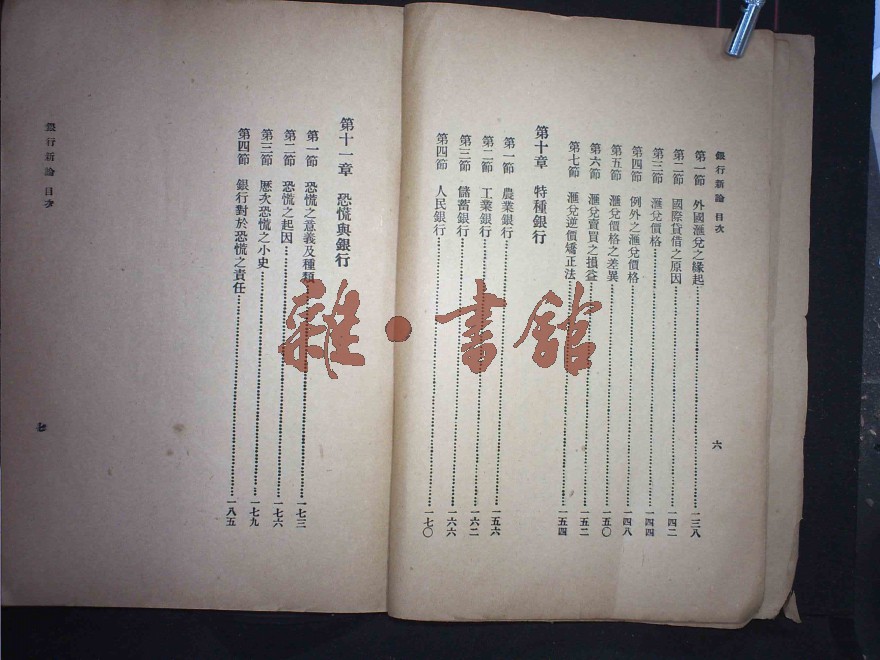 銀行新論 目次
六
第一節 外國滙兌之緣起 一三八
第二節 國際貸借之原因 一四二
第三節 滙兌價格 一四四
第四節 例外之滙兌價格 一四八
第五節 滙兌價格之差異 一五〇
第六節 滙兌賣買之損益 一五二
第七節 滙兌逆價矯正法 一五四
第十章 特種銀行
第一節 農業銀行 一五六
第二節 工業銀行 一六二
第三節 儲蓄銀行 一六六
第四節 人民銀行 一七〇
第十一章 恐慌與銀行
第一節 恐慌之意義及種類 一七三
第二節 恐慌之起因 一七六
第三節 歷次恐慌之小史 一七九
第四節 銀行對於恐慌之責任 一八五
銀行新論 目次
七
雜·書館